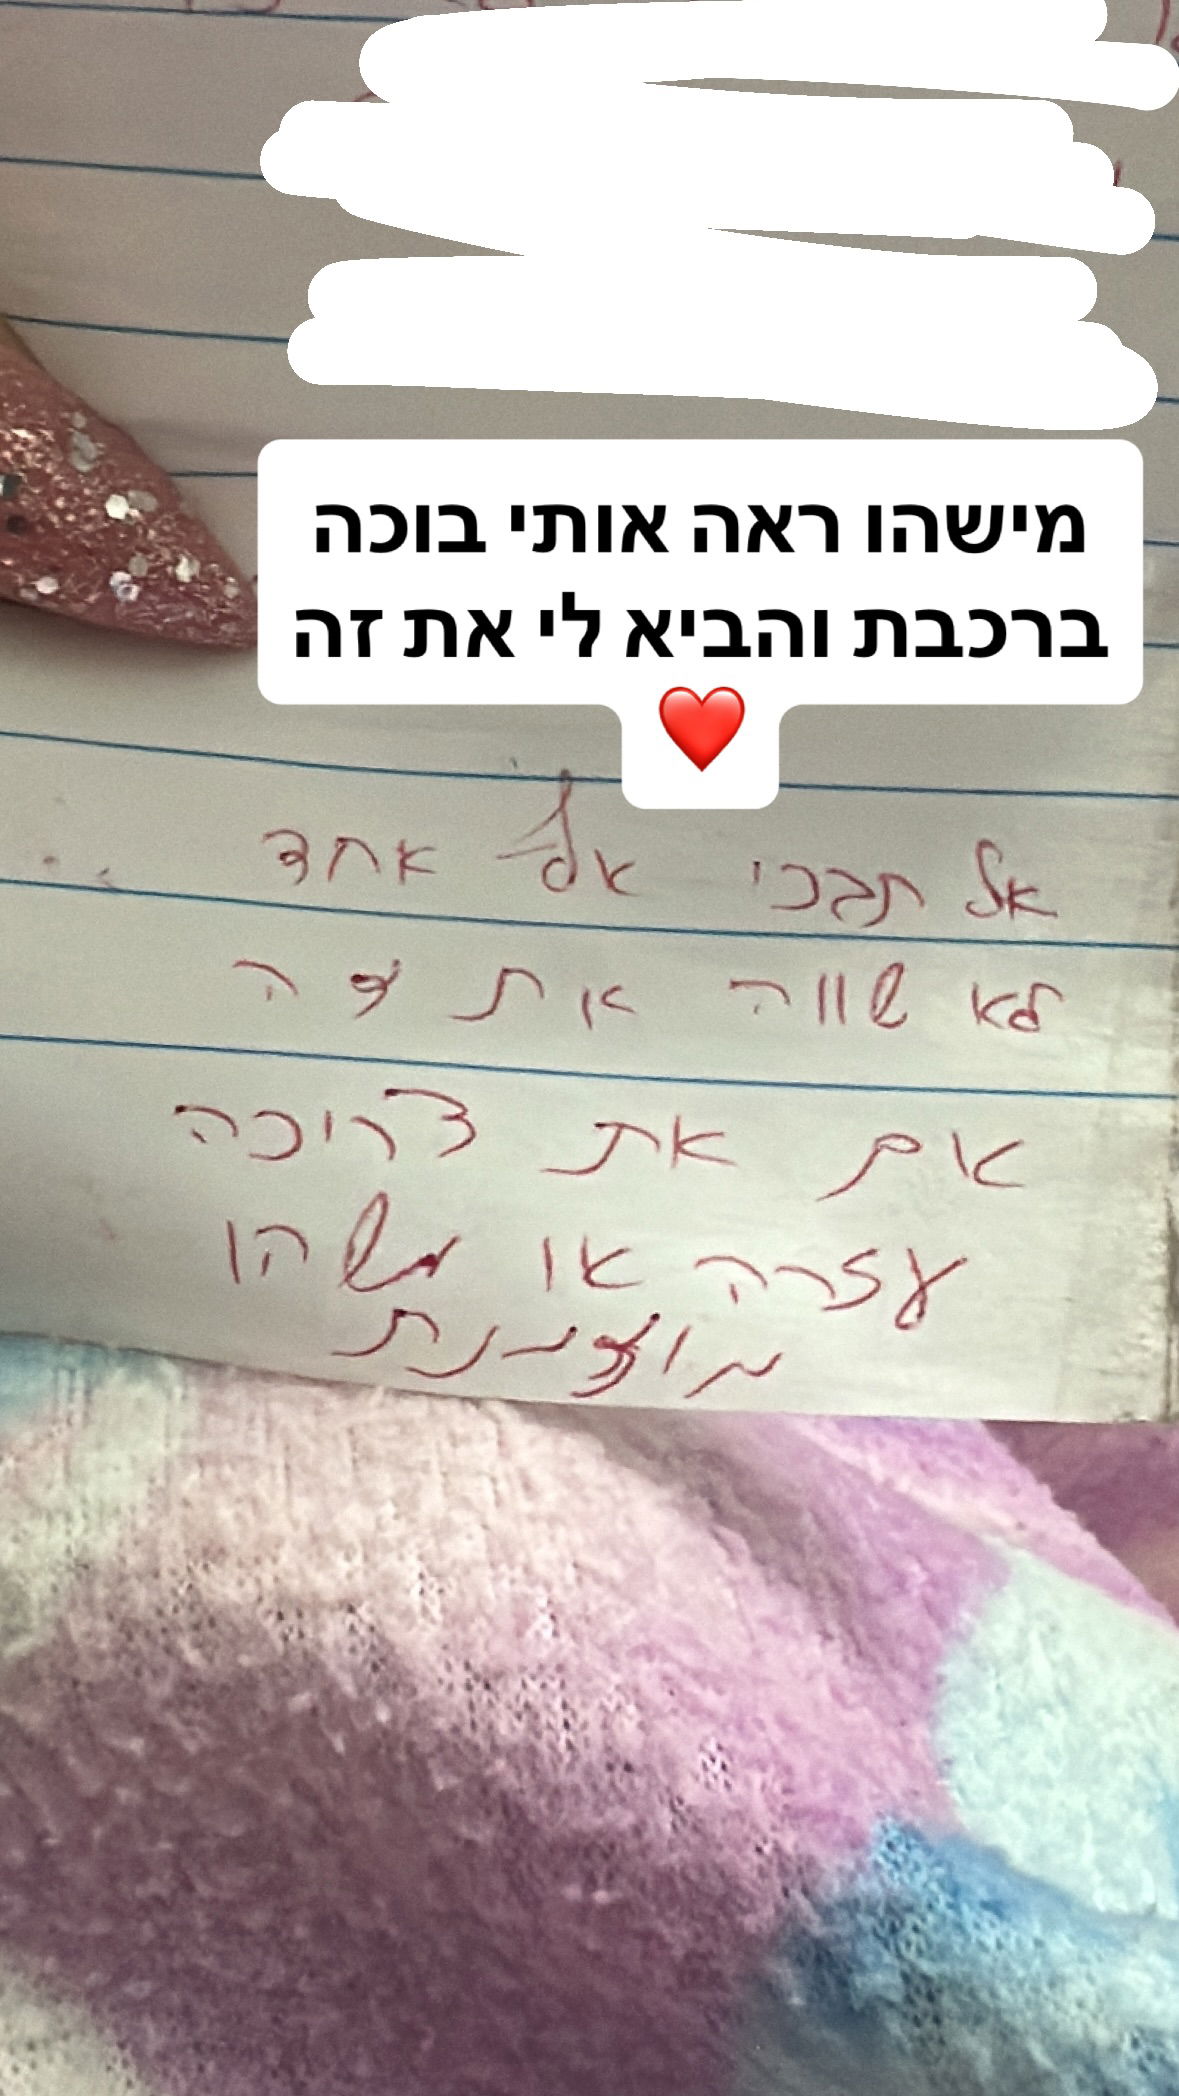 מישהו ראה אותי בוכה
ברכבת והביא לי את זה
❤️
אל תבכי אף אחד
לא שווה את זה
אם את צריכה
עזרה או משהו
מוזמנת